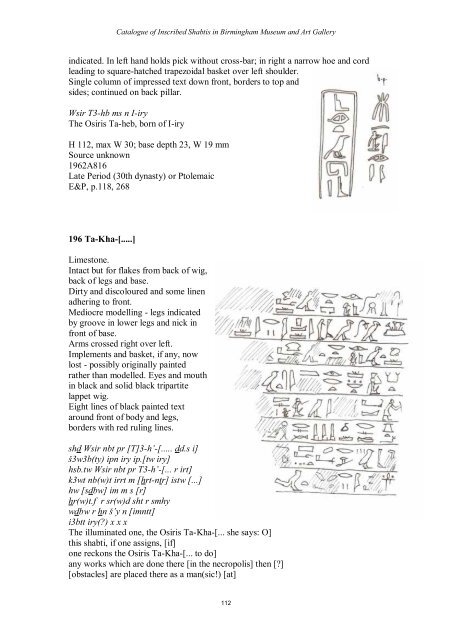 Catalogue of Inscribed Shabtis in Birmingham Museum and Art Gallery
indicated. In left hand holds pick without cross-bar; in right a narrow hoe and cord
leading to square-hatched trapezoidal basket over left shoulder.
Single column of impressed text down front, borders to top and
sides; continued on back pillar.
b.p.
Wsir T3-hb ms n I-iry
The Osiris Ta-heb, born of I-iry
H 112, max W 30; base depth 23, W 19 mm
Source unknown
1962A816
Late Period (30th dynasty) or Ptolemaic
E&P, p.118, 268
196 Ta-Kha-[.....]
Limestone.
Intact but for flakes from back of wig,
back of legs and base.
Dirty and discoloured and some linen
adhering to front.
Mediocre modelling - legs indicated
by groove in lower legs and nick in
front of base.
Arms crossed right over left.
Implements and basket, if any, now
lost - possibly originally painted
rather than modelled. Eyes and mouth
in black and solid black tripartite
lappet wig.
Eight lines of black painted text
around front of body and legs,
borders with red ruling lines.
sḥḏ Wsir nbt pr [T]3-ḫ'-[..... ḏd.s i]
š3w3b(ty) ipn iry ip.[tw iry]
ḥsb.tw Wsir nbt pr T3-ḫ'-[... r irt]
k3wt nb(w)t irrt m [ẖrt-nṯr] istw [...]
ḥw [sḏbw] im m s [r]
ẖr(w)t.f r sr(w)d sḫt r smḥy
wḏbw r ẖn š'y n [imntt]
i3btt iry(?) x x x
The illuminated one, the Osiris Ta-Kha-[... she says: O]
this shabti, if one assigns, [if]
one reckons the Osiris Ta-Kha-[... to do]
any works which are done there [in the necropolis] then [?]
[obstacles] are placed there as a man(sic!) [at]
112